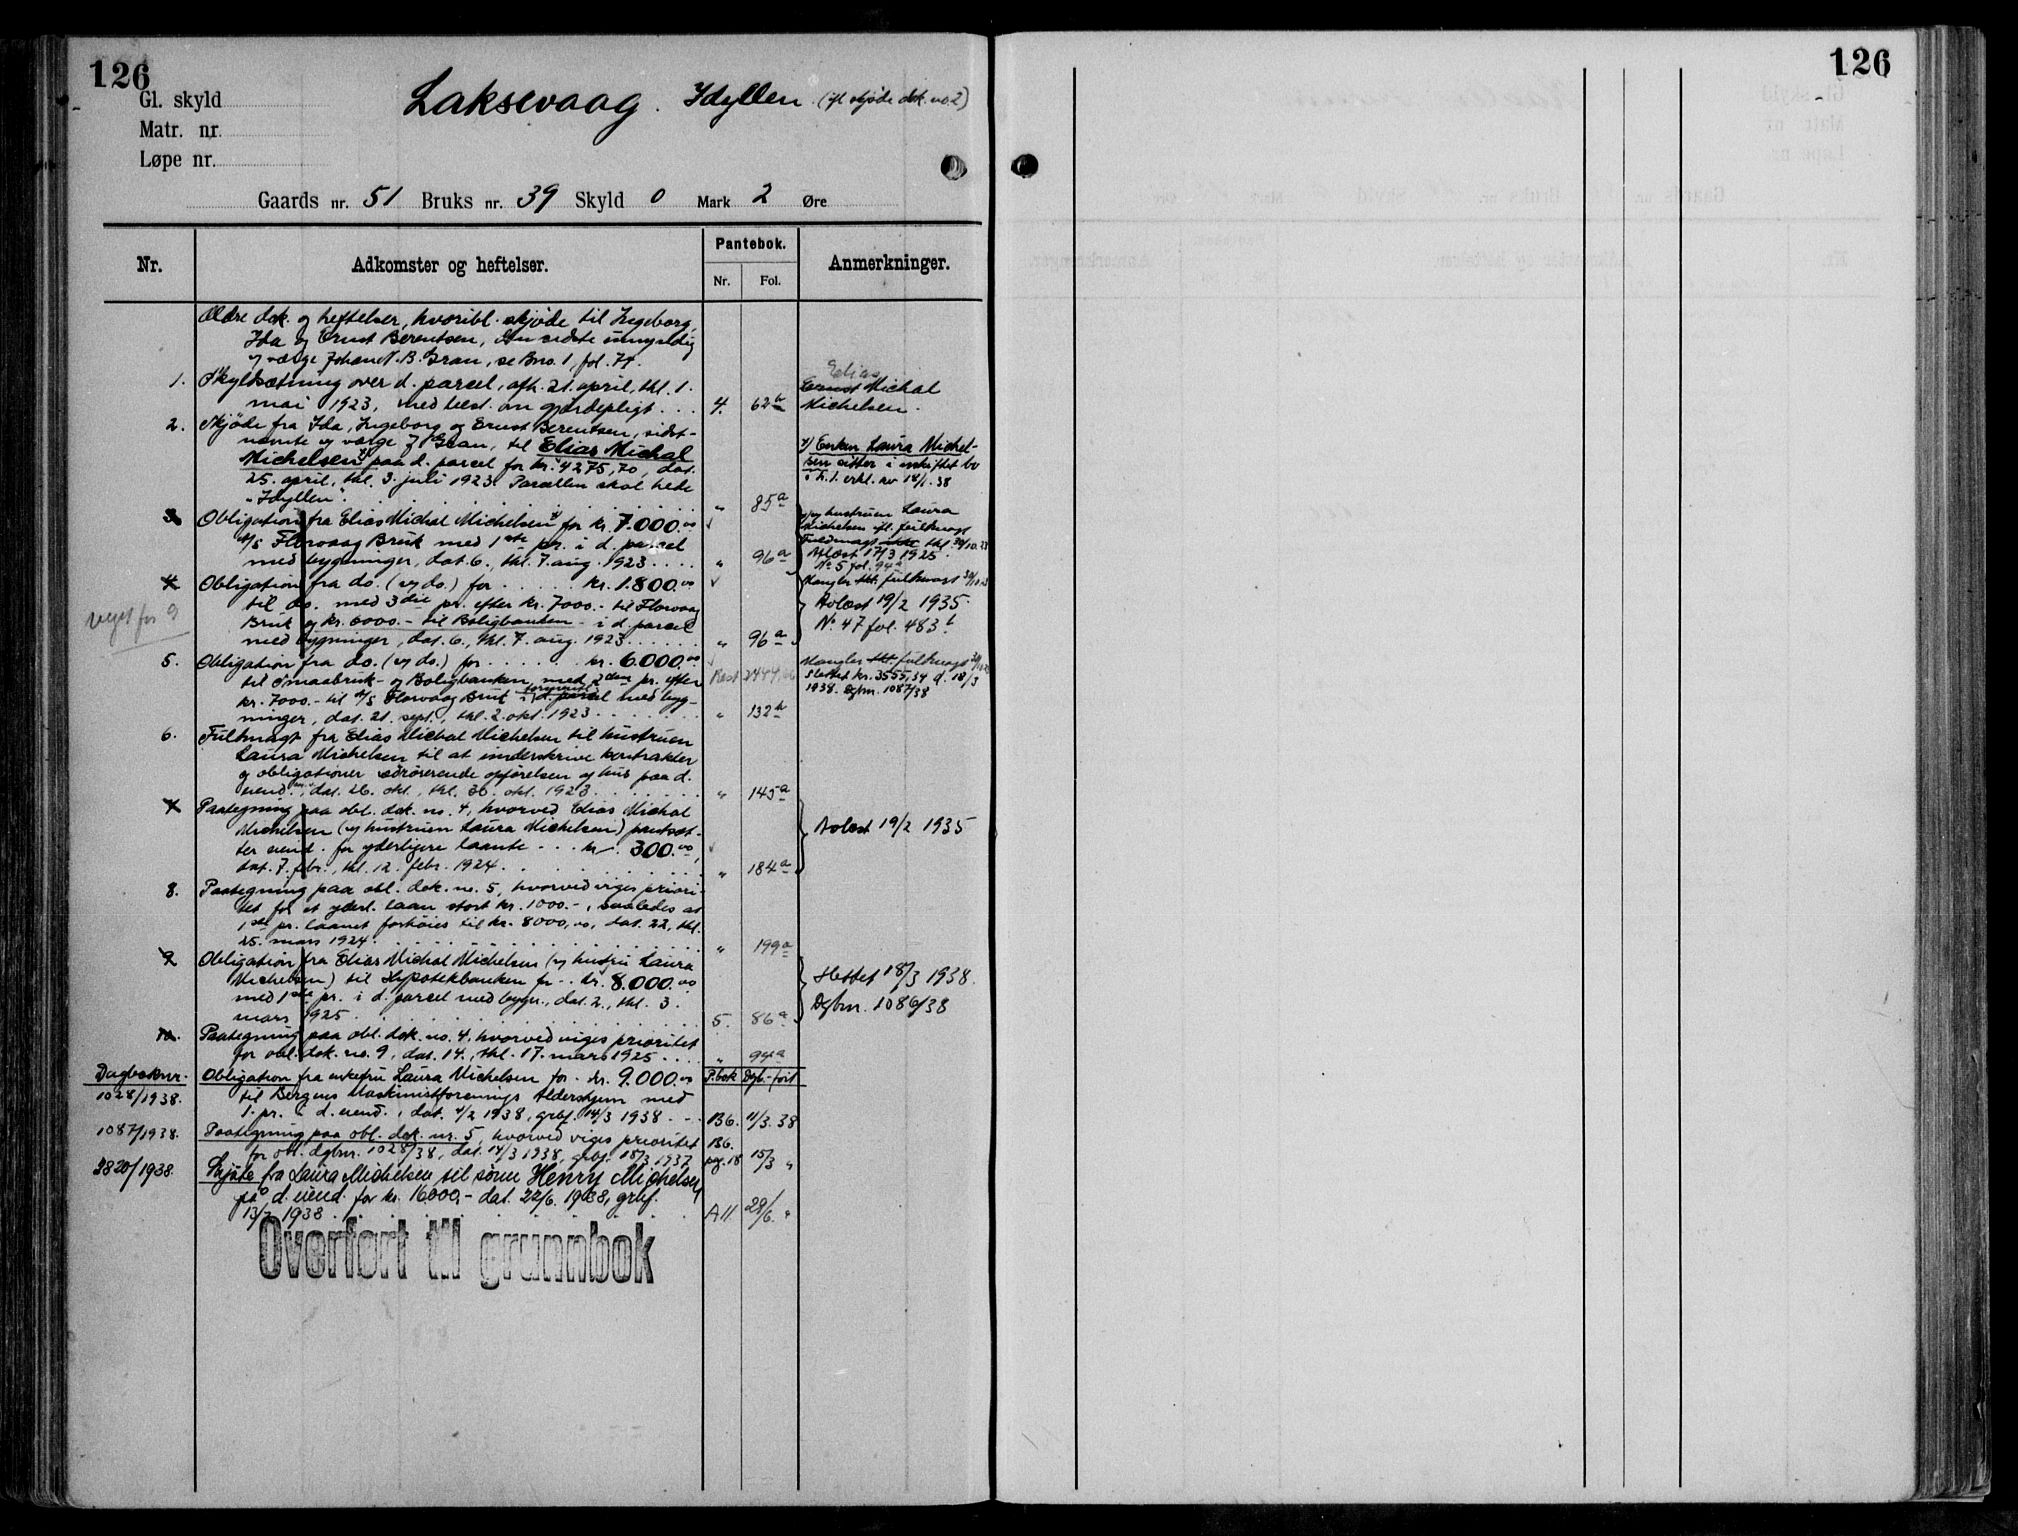 126
126
Gl. skyld
Laksevaag. Idyllen (ifl. skjøde dok. no. 2)
Matr. nr.
Løpe nr.
Gaards nr. 51 Bruks nr. 39 Skyld 0 Mark 2 Øre
Nr. Adkomster og heftelser. Pantebok. Anmerkninger.
Nr. Fol.
Ældre dok. og heftelser, hvoribl. skjøde til Ingeborg,
Ida og Ernst Berentsen, den sidste umyndig
og værge Johan N. B. Gran, se Bno. 1, fol. 74.
1. Skyldsætning over d. parcel, afh. 21. april, thl. 1.
mai 1923, med best. om gjærdepligt . . . 4. 62 b
Elias
Ernst Michal
Michelsen.
2. Skjøde fra Ida, Ingeborg og Ernst Berentsen, sidst-
nævnte og værge J. Gran, til Elias Michal
Michelsen x) paa d. parcel for kr. 4275,70, dat.
25. april, thl. 3. juli 1923. Parcellen skal hede
"Idyllen". . . . " 85 a
x) Enken Laura Michel-
sen sitter i uskiftet bo
i h. t. erkl. av 18/1. 38
3. Obligation fra Elias Michal Michelsen x) for kr. 7.000.00
A/S Florvaag Bruk med 1ste pr. i d. parcel
med bygninger, dat. 6., thl. 7. aug. 1923 . . . . " 96 a
x) og hustruen Laura
Michelsen ifl. fuldmagt
Fuldmagt thl. 30/10. 23
Avlæst 17/3 1925.
No 5 fol. 94 a
4. Obligation fra do. (og do.) for . . . . kr. 1.800.00
til do. med 3die pr. efter kr. 7000.- til Florvaag
Bruk og kr. 6000.- til Boligbanken - i d. parcel
med bygninger, dat. 6., thl. 7. aug. 1923 . . . . " 96 a
veget for 9
Mangler fuldmagt 30/10 23
Avlæst 19/2 1935.
No. 47 fol. 483 b
5. Obligation fra do. (og do.) for . . . . kr. 6.000.00
til Smaabruk- og Boligbanken med 2den pr. efter Rest 2444,66
kr. 7000.- til A/S Florvaag Bruk i d. parcel med byg-
ninger, dat. 21. sept., thl. 2. okt. 1923 . . . . " 132 b
Mangler fuldmagt 30/10 23
slettet kr. 3555,34 d. 18/3
1938. Dgbnr. 1087/38
6. Fuldmagt fra Elias Michal Michelsen til hustruen
Laura Michelsen til at underskrive kontrakter
og obligationer vedrørende opførelsen af hus paa d.
eiend., dat. 26. okt., thl. 30. okt. 1923 . . . . " 145 a
7. Paategning paa obl. dok. no. 4, hvorved Elias Michal
Michelsen (og hustruen Laura Michelsen) pantsæt-
ter eiend. for yderligere laante . . . kr. 300.00,
dat. 7. febr., thl. 12. febr. 1924 . . . . " 184 a
Avlæst 19/2 1935
8. Paategning paa obl. dok. no. 5, hvorved viges priori-
tet for et yderl. laan stort kr. 1000.-, saaledes at
1ste pr. laanet forhøies til kr. 8000,00, dat. 22., thl.
25. mars 1924. . . . " 199 a
9. Obligation fra Elias Michal Michelsen (og hustru Laura
Michelsen) til Hypotekbanken for . . kr. 8.000.00
med 1ste pr. i d. parcel med bygn., dat. 2., thl. 3.
mars 1925 . . . . 5. 86 a
Slettet 18/3 1938.
Dgbnr. 1086/38
10. Paategning paa obl. dok. no. 4, hvorved viges prioritet
for obl. dok. no. 9, dat. 14., thl. 17. mars 1925 . . . . " 94 a
Dagboknr. Obligation fra enkefru Laura Michelsen for . kr. 9.000.00 P.bok Dgb.-ført
1028/1938. til Bergens Maskinistforenings Aldershjem med
1. pr. i d. eiend., dat. 4/2 1938, grbf. 14/3 1938 . . . B6. 11/3. 38
1087/1938. Paategning paa obl. dok. nr. 5, hvorved viges prioritet B6.
for obl. dgbnr. 1028/38, dat. 14/3 1938, grbf. 18/3 1937 pag. 18 15/3 "
3820/1938. Skjøte fra Laura Michelsen til sønn Henry Michelsen
på d. eiend. for kr. 16000,- dat. 22/6. 1938, grbf.
13/7 1938 . . . . A11. 29/6. "
Overført til grunnbok